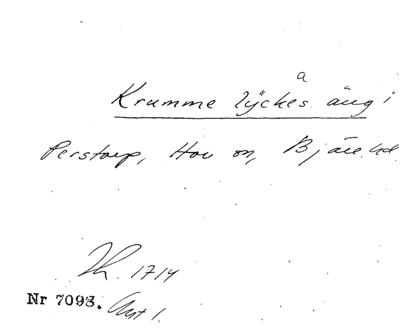 a
Krumme lÿckes äng i
Perstorp, Hov sn, Bjäre hd
1714
Nr 7093.